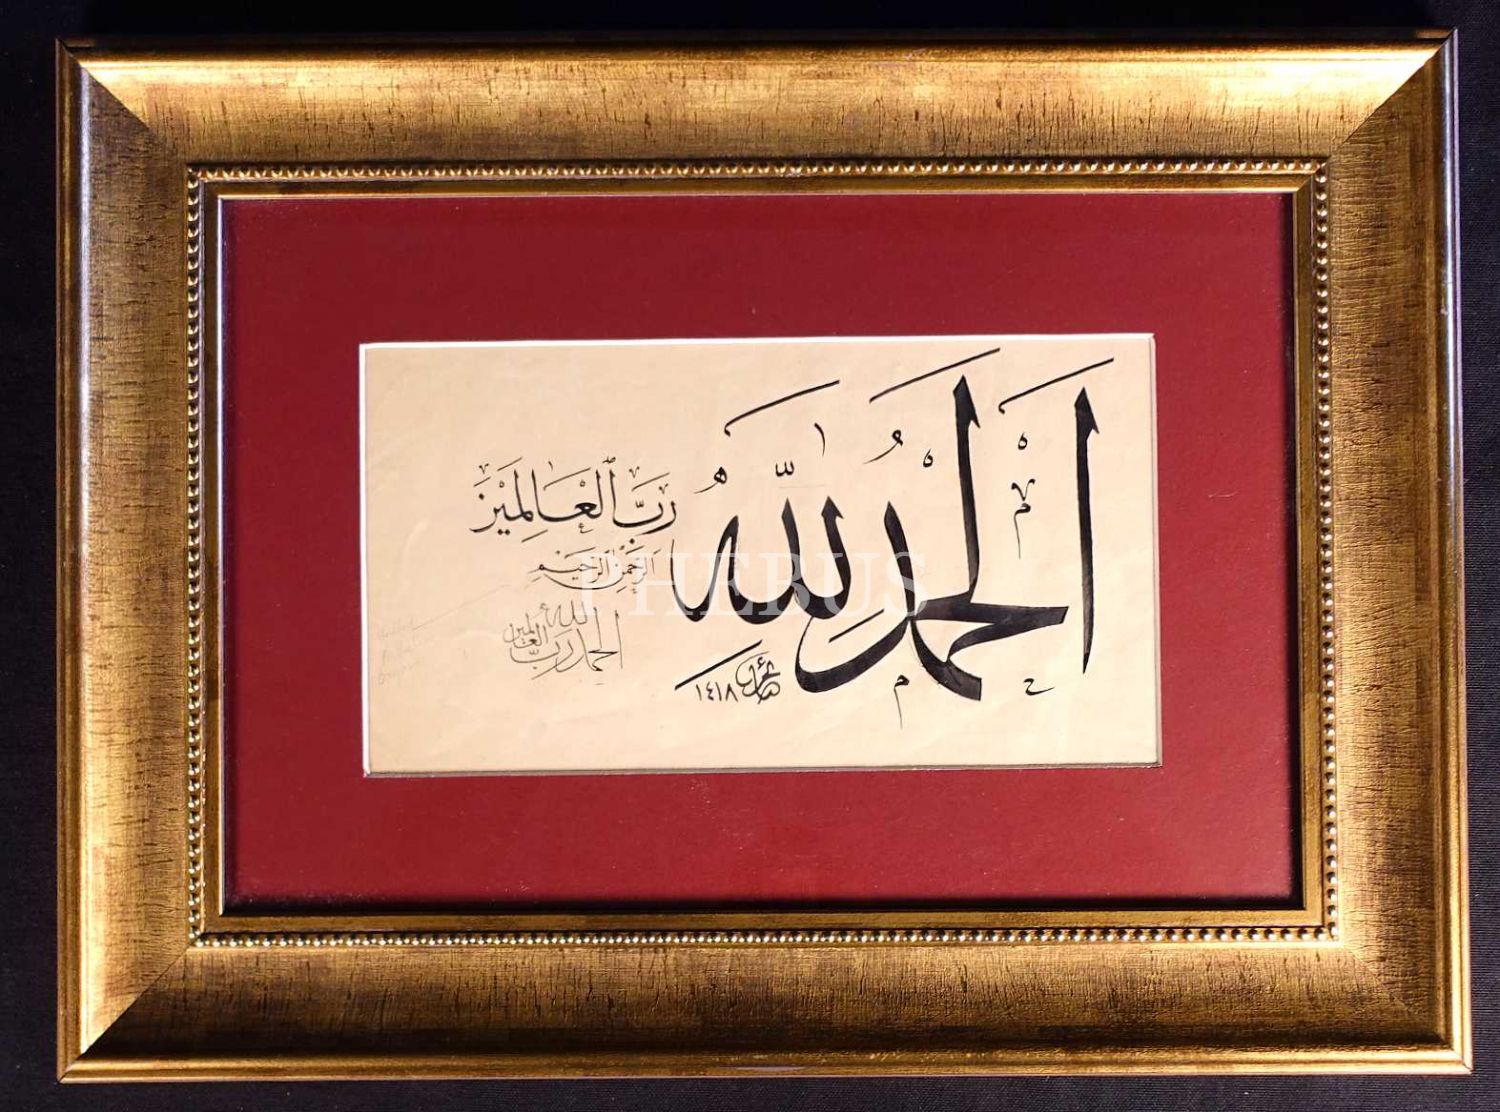 الحمد لله
رَبِّ ٱلْعَالَمِينَ
الرحمن الرحيم
الحمد لله رب العالمين
١٤١٨
PHEBUS